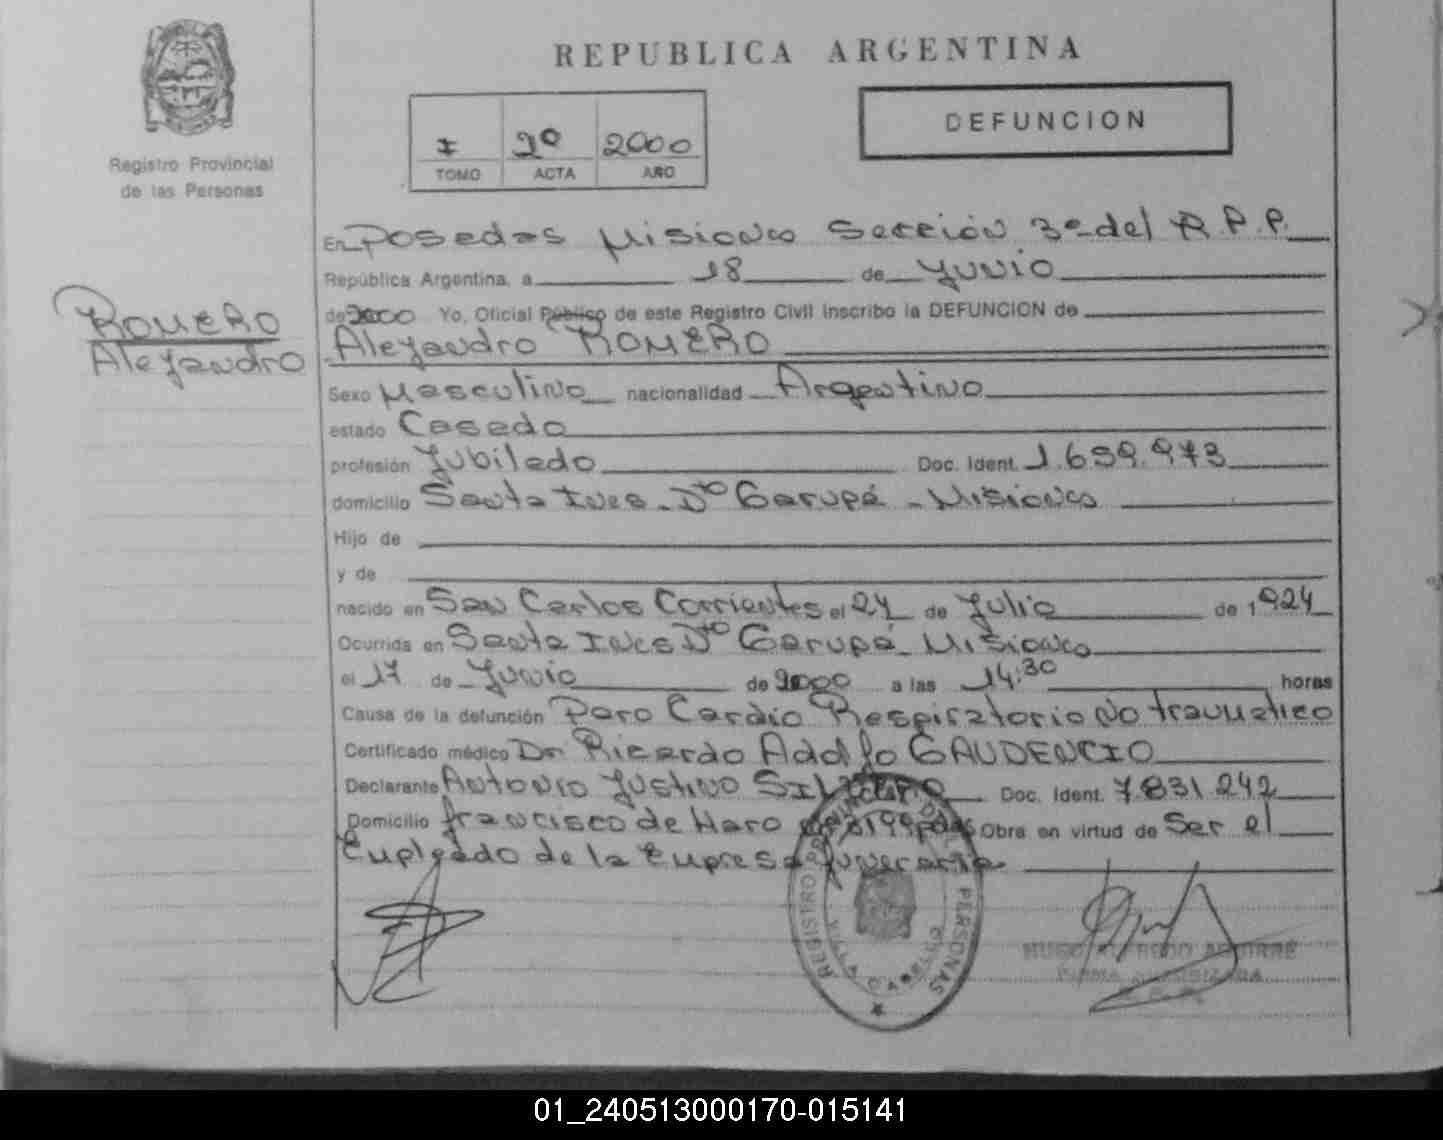 REPUBLICA ARGENTINA
DEFUNCION
I 2000
TOMO ACTA AÑO
Registro Provincial
de las Personas
ROMERO
Alejandro
En Posadas Misiones Sección 3ª del R.P.P.
República Argentina, a 18 de Junio
de 2000 Yo, Oficial Público de este Registro Civil inscribo la DEFUNCION de
Alejandro ROMERO
Sexo Masculino nacionalidad Argentino
estado Casado
profesión Jubilado Doc. Ident. 1.659.973
domicilio Santa Ines - Dto Garupá - Misiones
Hijo de
y de
nacido en San Carlos Corrientes el 24 de Julio de 1924
Ocurrida en Santa Ines Dto Garupá - Misiones
el 17 de Junio de 2000 a las 14:30 horas
Causa de la defunción Paro Cardio Respiratorio No traumatico
Certificado médico Dr. Ricardo Adolfo GAUDENCIO
Declarante Antonio Justino Doc. Ident. 7.831.242
Domicilio francisco de Haro Obra en virtud de Ser el
Empleado de la Empresa funeraria
REGISTRO PROVINCIAL DE LAS PERSONAS
VILLA CABELLO
HUGO ALFREDO AGUIRRE
FIRMA AUTORIZADA
01_240513000170-015141